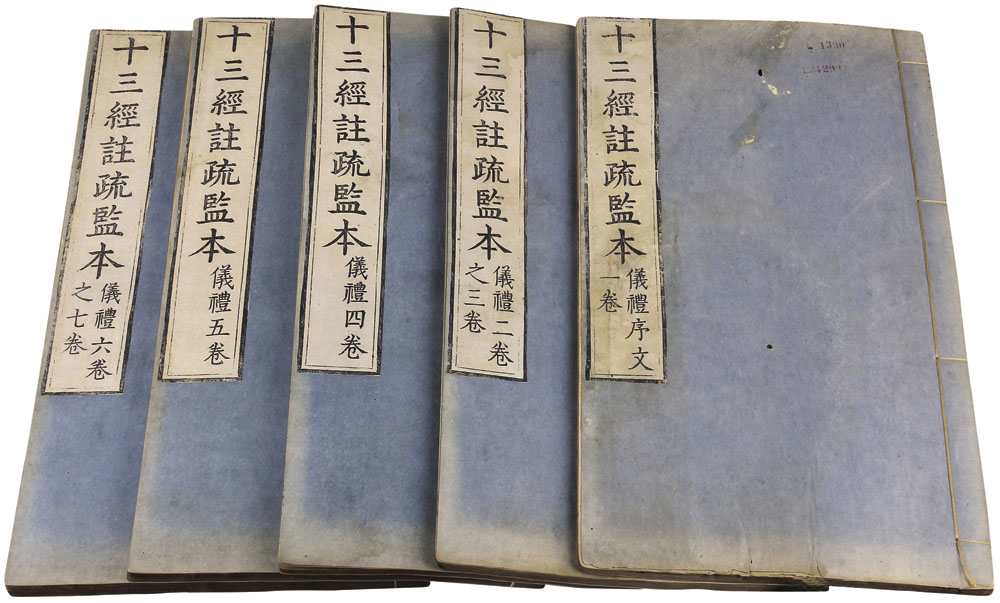 十三經註疏監本儀禮序文
一卷
十三經註疏監本儀禮二卷
之三卷
十三經註疏監本儀禮四卷
十三經註疏監本儀禮五卷
十三經註疏監本儀禮六卷
之七卷